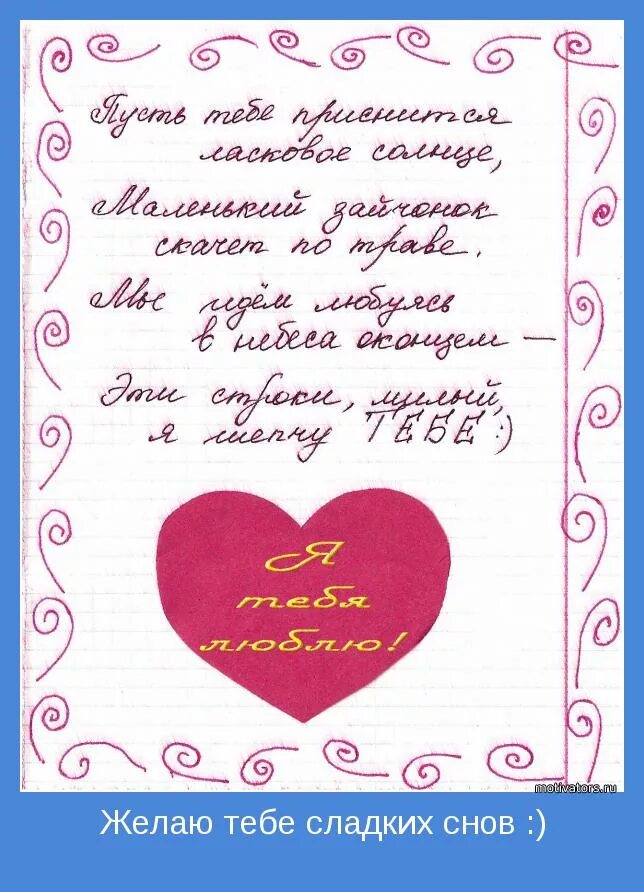 Пусть тебе приснится
ласковое солнце,
Маленький зайчонок
скачет по траве.
Мы идём любуясь
в небеса оконцем —
Эти строки, милый,
я шепчу ТЕБЕ :)
Я
тебя
люблю!
motivators.ru
Желаю тебе сладких снов :)